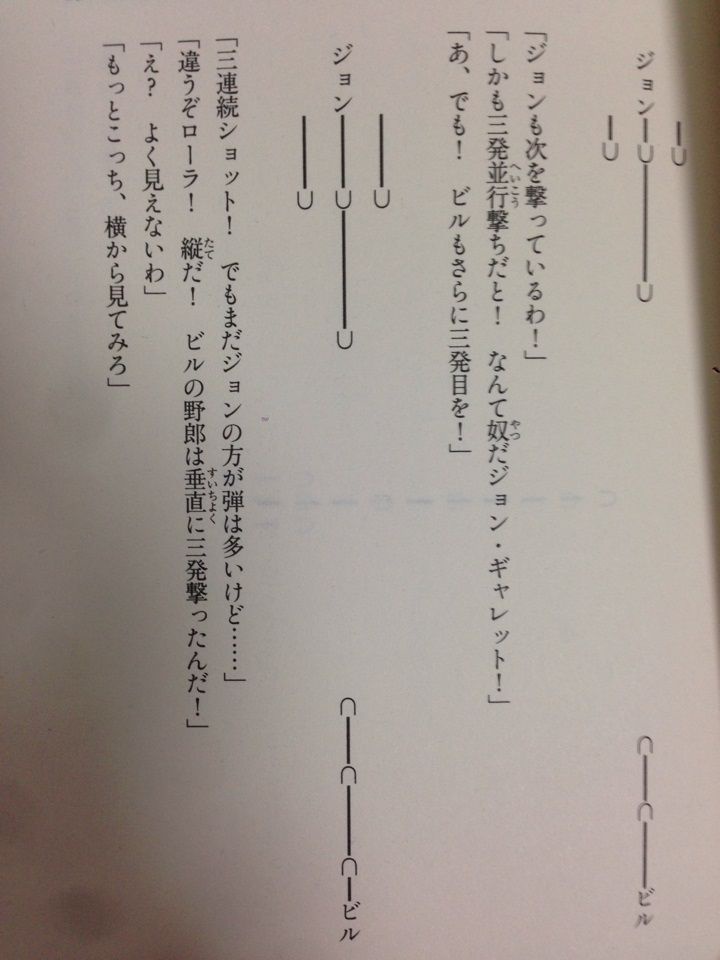 ジョン━∪━━━∪　　　∩━∩━━ビル
「ジョンも次を撃っているわ！」
「しかも三発並行撃ちだと！　なんて奴だジョン・ギャレット！」
「あ、でも！　ビルもさらに三発目を！」
ジョン━━∪━━━∪　　　∩━∩━━∩━ビル
「三連続ショット！　でもまだジョンの方が弾は多いけど……」
「違うぞローラ！　縦だ！　ビルの野郎は垂直に三発撃ったんだ！」
「え？　よく見えないわ」
「もっとこっち、横から見てみろ」